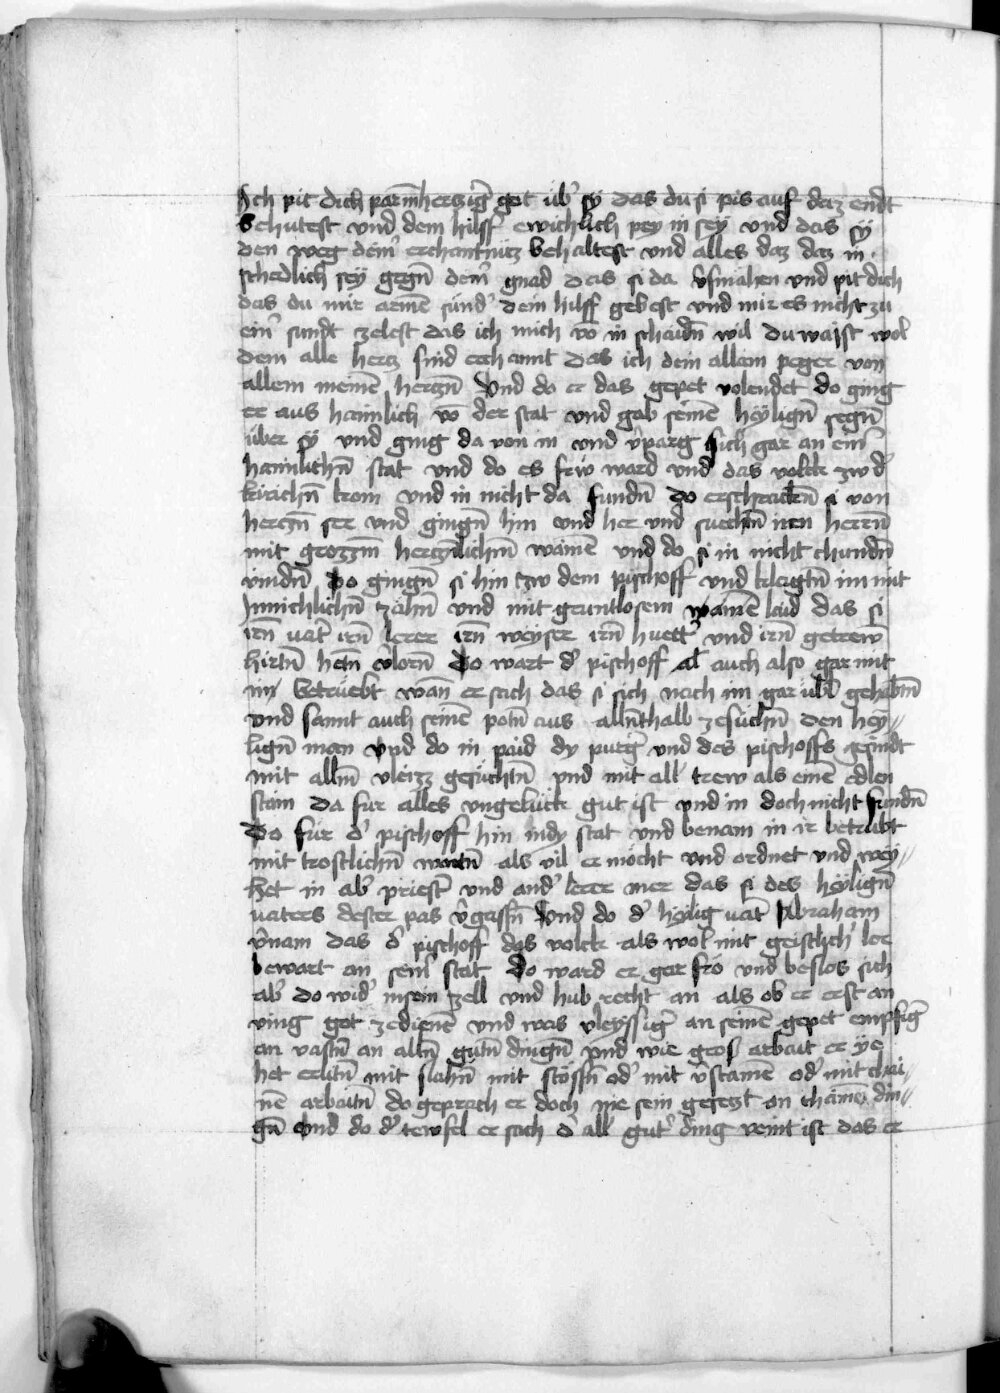 Ich pit dich parmhercziḡ got üb̾ sy das du si pis auf daz endt
behutest vnd dein hilff ewichlich pey in sey vnd das sy
den weg dein̾ erchantnüz behaltest vnd alles daz daz in
schedlich sey gegn̄ dein̾ gnad das si da v̾smahen vnd pit dich
das du mir armē sünd̾ dein hilff gebest vnd mir es nicht zu
ein̾ sundt zelest das ich mich vō in schaidn̄ wil du waist wol
dem alle hercz sind erchannt das ich dein allain peger von
allem meinē herczn̄ Vnd do er das gepet volendet do ging
er aus haimlich vō der stat vnd gab seinē heylign̄ segn̄
über sy vnd ging da von in vnd v̾parg sich gar an ein̾
haimlichn̄ stat vnd do es frw ward vnd das volck zw d̾
kirichn̄ kom vnd in nicht da fundn̄ do erschrackn̄ si von
herczn̄ ser vnd gingn̄ hin vnd her vnd suechtn̄ iren herrn̄
mit grozzm̄ herczn̄lichm̄ wainē vnd do si in nicht chundn̄
vindn̄ Do gingn̄ si hin tzw dem pischoff vnd klagtn̄ im mit
Innichlichn̄ zähn̄ vnd mit gruntlosem wainē laid das si
irn̄ vat̾ irn̄ lerer irn̄ weyser irn̄ huett̾ vnd irn̄ getrewn̄
hirtn̄ hetn̄ v̾lorn̄ Do wart d̾ pischoff al auch also gar mit
in betruebt wan̄ er sach das si sich nach im gar übl̾ gehabm̄
vnd sannt auch seinē potn̄ aus alln̄thalb zesuchn̄ den hey⸗
lign̄ man vnd do in paid dy purg̾ vnd des pischoffs gesindt
mit allm̄ vleizz gesuchtn̄ vnd mit all̾ trew als einē edlen
stain da fur alles vngelück gut ist vnd in doch nicht fundn̄
Do für d̾ pischoff hin in dy stat vnd benam in ir betrübt
mit trostlichn̄ wortn̄ als vil er mocht vnd ordnet vnd wey⸗
het in ab̾ priest̾ vnd and̾ lerer mer das si des heylign̄
vaters dester pas v̾gassn̄ Vnd do d̾ heylig vat̾ Abraham
v̾nam das d̾ pischoff das volck als wol mit geistlich̾ ler
bewart an sein̾ stat Do ward er gar fro vnd beslos sich
ab̾ do wid̾ in sein zell vnd hub recht an als ob er erst an
ving got zedienē vnd was vleyssig̾ an seinē gepet empsig̾
an vastn̄ an alln̄ gutn̄ dingn̄ vnd wie gros arbait er ye
het erlitn̄ mit slahn̄ mit stössn̄ od̾ mit v̾stainē od̾ mit chai⸗
nē arbaitn̄ do geprach er doch nie sein gesetzt an chainē din⸗
gn̄ Vnd do d̾ tewfel er sach d̾ all̾ gut̾ ding veint ist das er